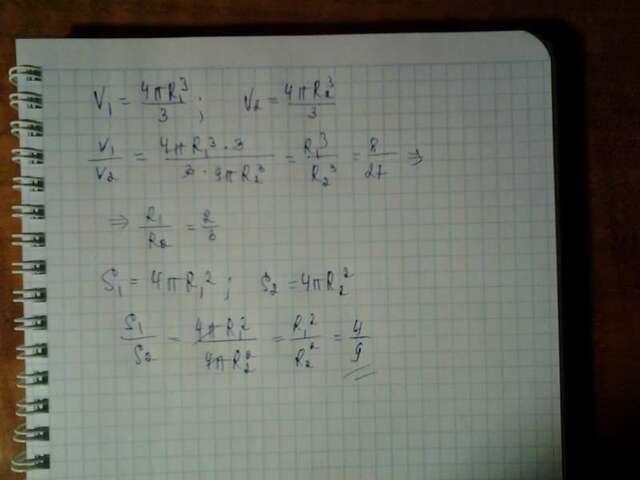 V₁ = 4πR₁³/3 ; V₂ = 4πR₂³/3
V₁/V₂ = 4πR₁³·3 / 3·4πR₂³ = R₁³/R₂³ = 8/27 ⇒
⇒ R₁/R₂ = 2/3
S₁ = 4πR₁² ; S₂ = 4πR₂²
S₁/S₂ = 4πR₁²/4πR₂² = R₁²/R₂² = 4/9